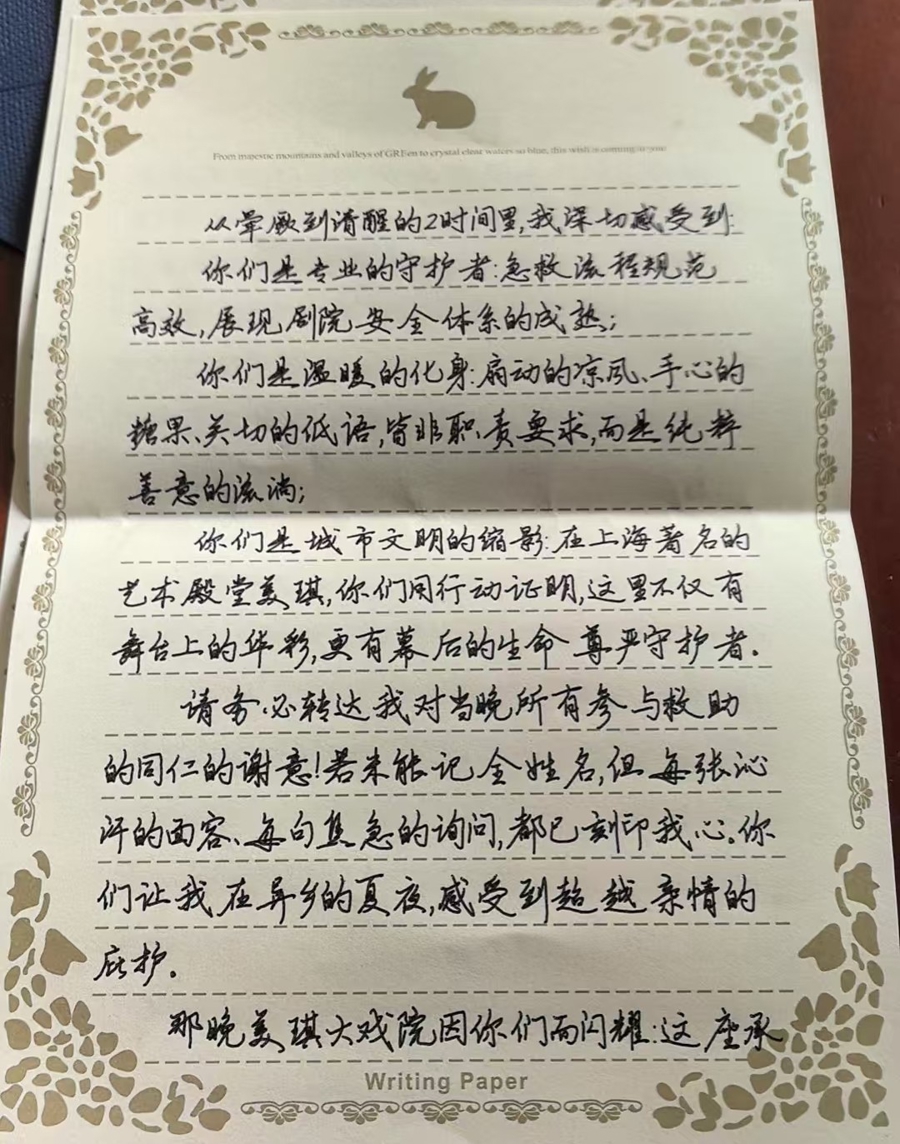 From majestic mountains and valleys of GREen to crystal clear waters so blue, this wish is coming to you
从晕厥到清醒的2时间里,我深切感受到:
你们是专业的守护者:急救流程规范
高效,展现剧院安全体系的成熟;
你们是温暖的化身:扇动的凉风、手心的
糖果、关切的低语,皆非职责要求,而是纯粹
善意的流淌;
你们是城市文明的缩影:在上海著名的
艺术殿堂美琪,你们用行动证明,这里不仅有
舞台上的华彩,更有幕后的生命尊严守护者。
请务必转达我对当晚所有参与救助
的同仁的谢意!若未能记全姓名,但每张沁
汗的面容、每句焦急的询问,都已刻印我心。你
们让我在异乡的夏夜,感受到超越亲情的
庇护。
那晚美琪大戏院因你们而闪耀:这座承
Writing Paper